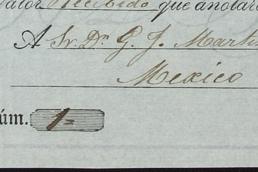 valor recibido que anotará
A Sr. Dr. G. J. Marti
Mexico
úm. 1=